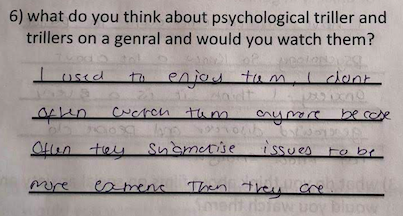 6) what do you think about psychological triller and
trillers on a genral and would you watch them?
I used to enjoy tam, I dont
often watch tum anymore becose
Often tey sugmatise issues to be
more extreme Then they are.